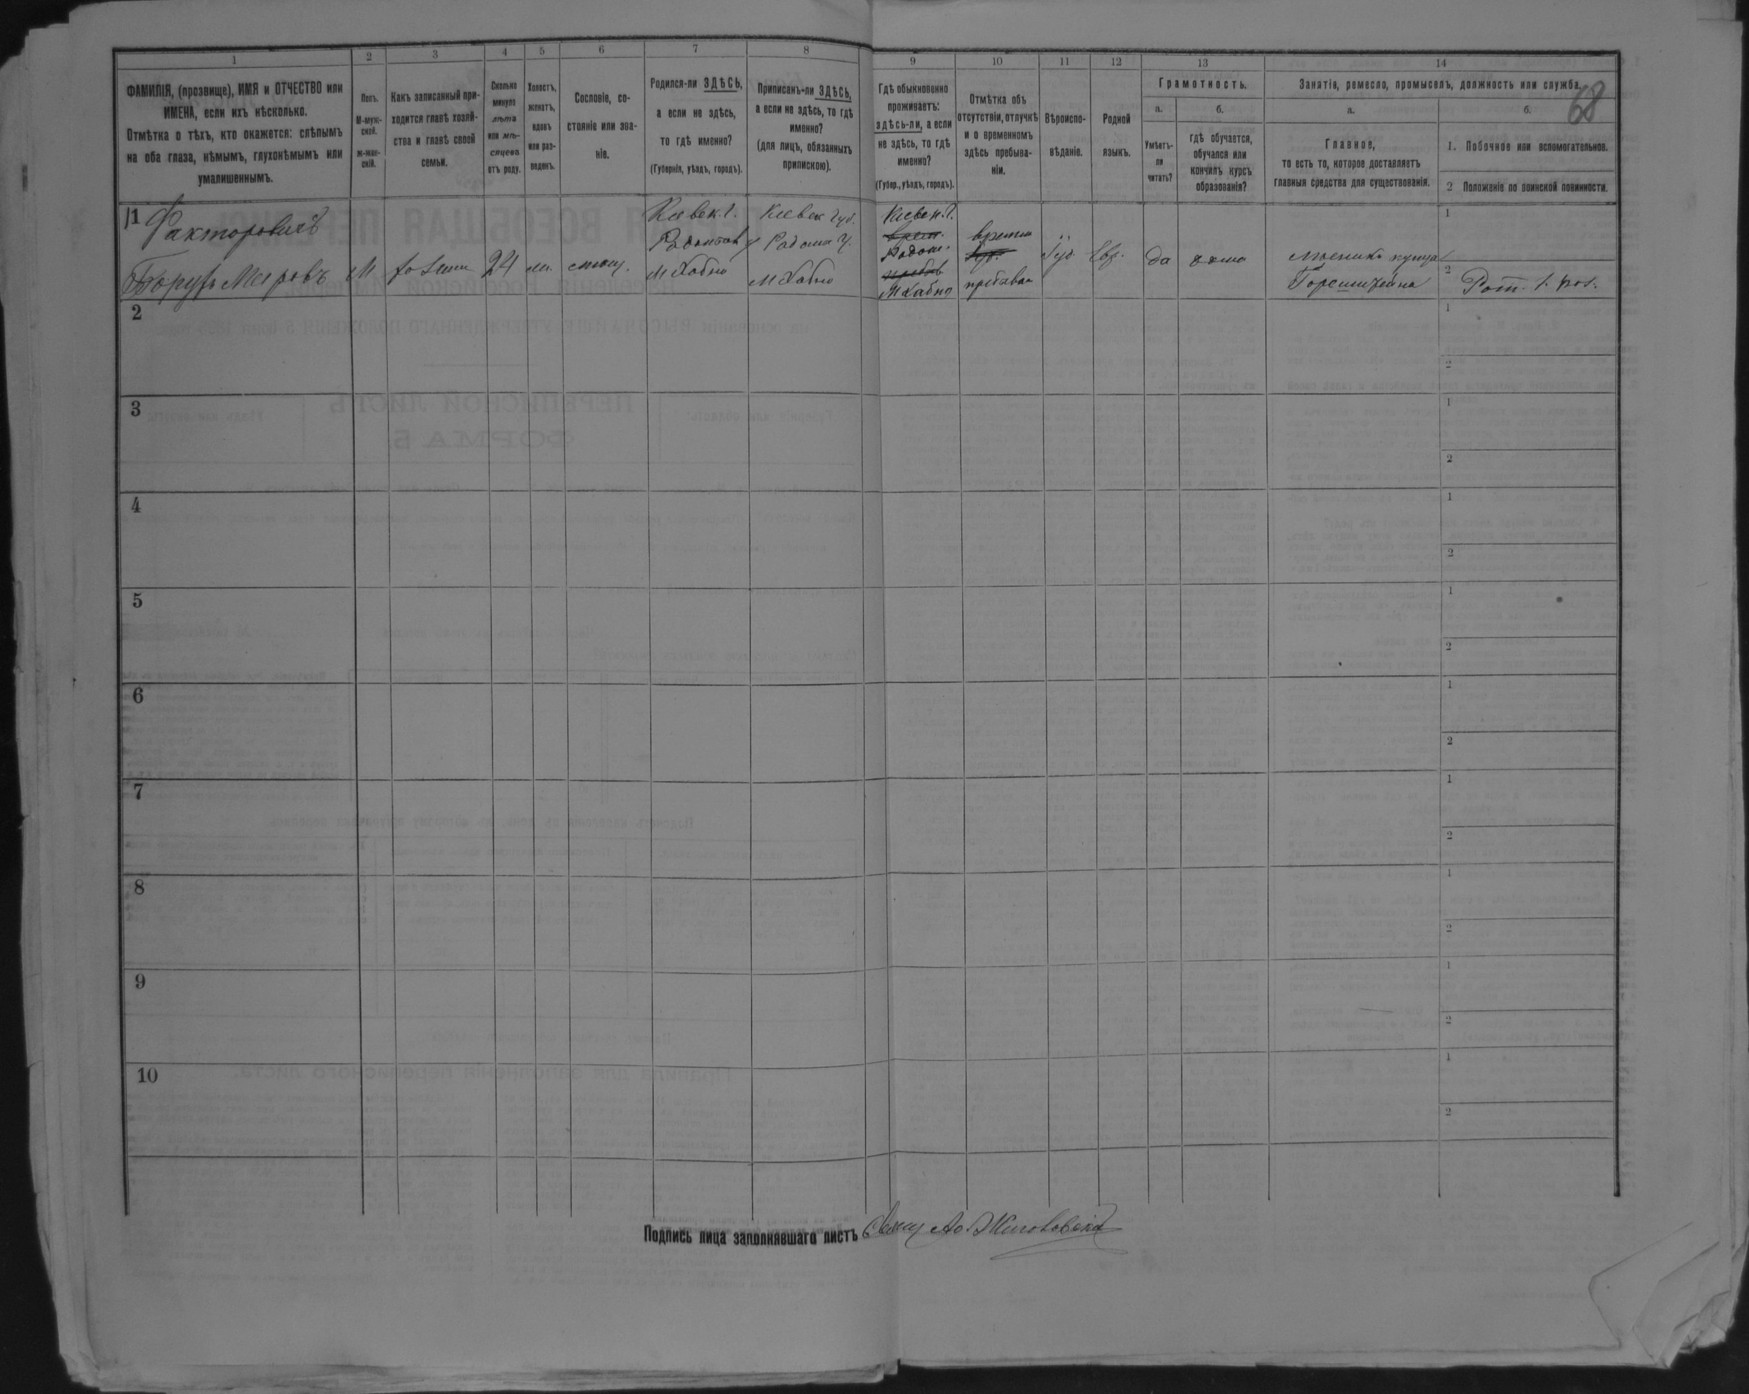 68
1
2
3
4
5
6
7
8
9
10
11
12
13
14
ФАМИЛІЯ, (прозвище), ИМЯ и ОТЧЕСТВО или
ИМЕНА, если ихъ нѣсколько.
Отмѣтка о тѣхъ, кто окажется: слѣпымъ
на оба глаза, нѣмымъ, глухонѣмымъ или
умалишеннымъ.
Полъ.
М-муж-
ской.
ж-жен-
скій.
Какъ записанный при-
ходится главѣ хозяй-
ства и главѣ своей
семьи.
Сколько
минуло
лѣтъ
или мѣ-
сяцевъ
отъ роду.
Холостъ,
женатъ,
вдовъ
или раз-
веденъ.
Сословіе, со-
стояніе или зва-
ніе.
Родился-ли ЗДѢСЬ,
а если не здѣсь,
то гдѣ именно?
(Губернія, уѣздъ, городъ).
Приписанъ-ли ЗДѢСЬ,
а если не здѣсь, то гдѣ
именно?
(для лицъ, обязанныхъ
припискою).
Гдѣ обыкновенно
проживаетъ:
здѣсь-ли, а если
не здѣсь, то гдѣ
именно?
(Губер., уѣздъ, городъ).
Отмѣтка объ
отсутствіи, отлучкѣ
и о временномъ
здѣсь пребыва-
ніи.
Вѣроиспо-
вѣданіе.
Родной
языкъ.
Грамотность.
а.
б.
Умѣетъ-
ли
читать?
гдѣ обучается,
обучался или
кончилъ курсъ
образованія?
Занятіе, ремесло, промыселъ, должность или служба.
а.
б.
Главное,
то есть то, которое доставляетъ
главныя средства для существованія.
1. Побочное или вспомогательное.
2 Положеніе по воинской повинности.
1
Факторовичъ
Борухъ Мееровъ
М
24
Кіевск. г.
М Хабно
Кіевск губ.
М Хабно
Кіевск. г.
М Хабно
Іуд.
Евр.
да
дома
1
2
2
1
2
3
1
2
4
1
2
5
1
2
6
1
2
7
1
2
8
1
2
9
1
2
10
1
2
Подпись лица заполнявшаго листъ